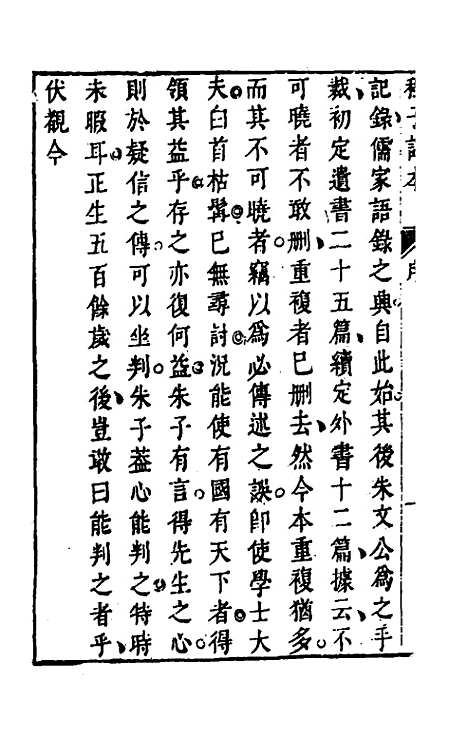 記錄儒家語錄之典自此始其後朱文公爲之手
裁初定遺書二十五篇續定外書十二篇據云不
可曉者不敢刪重複者已刪去然今本重複猶多
而其不可曉者竊以爲必傳述之誤卽使學士大
夫白首枯髯已無尋討況能使有國有天下者得
領其益乎存之亦復何益朱子有言得先生之心
則於疑信之傳可以坐判朱子葢心能判之特時
未暇耳正生五百餘歲之後豈敢曰能判之者乎
伏觀今